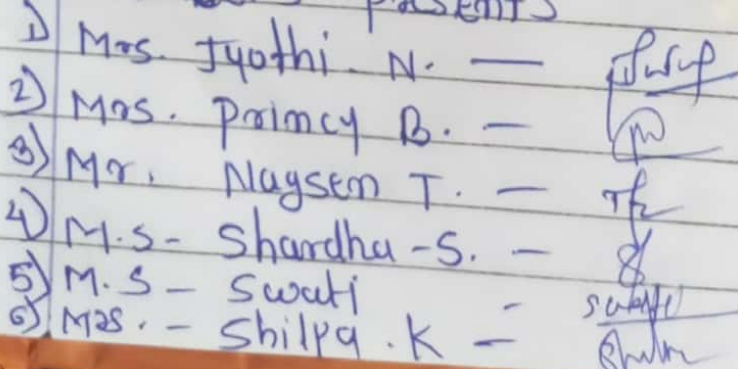 presents
1) Mrs. Jyothi. N. —
2) Mrs. Primcy B. —
3) Mr. Nagsen T. —
4) M.S - Shardha - S. —
5) M.S - Swati -
6) Mrs. - Shilpa . K —